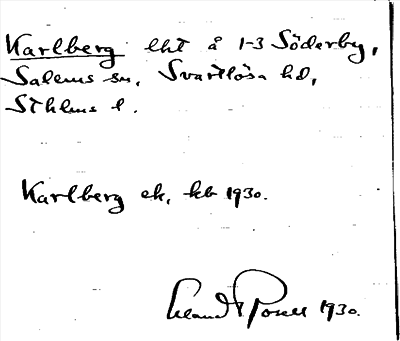 Karlberg lht å 1-3 Söderby,
Salems sn, Svartlösa hd,
Sthlms l.
Karlberg ek, kb 1930.
1930.